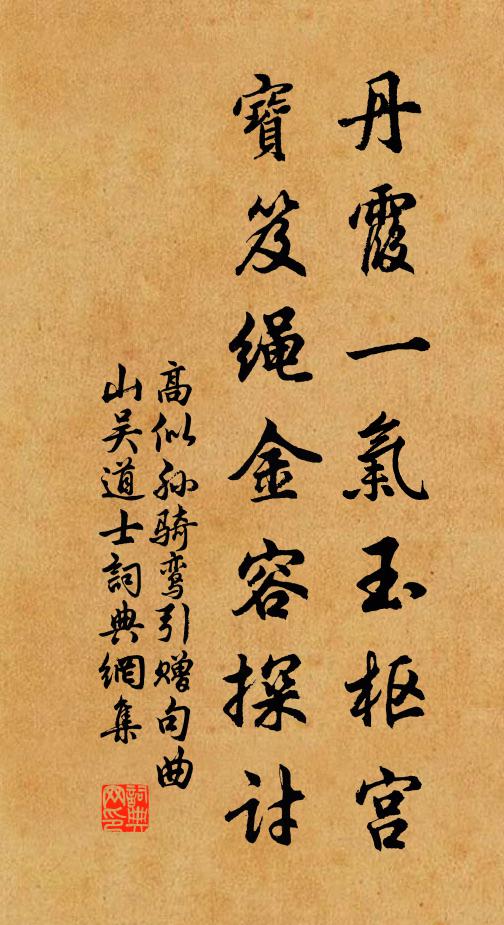 丹霞一氣玉枢宫
寶笈绳金容探讨
高似孙骑鸾引赠句曲
山吴道士詞典網集
詞典網印